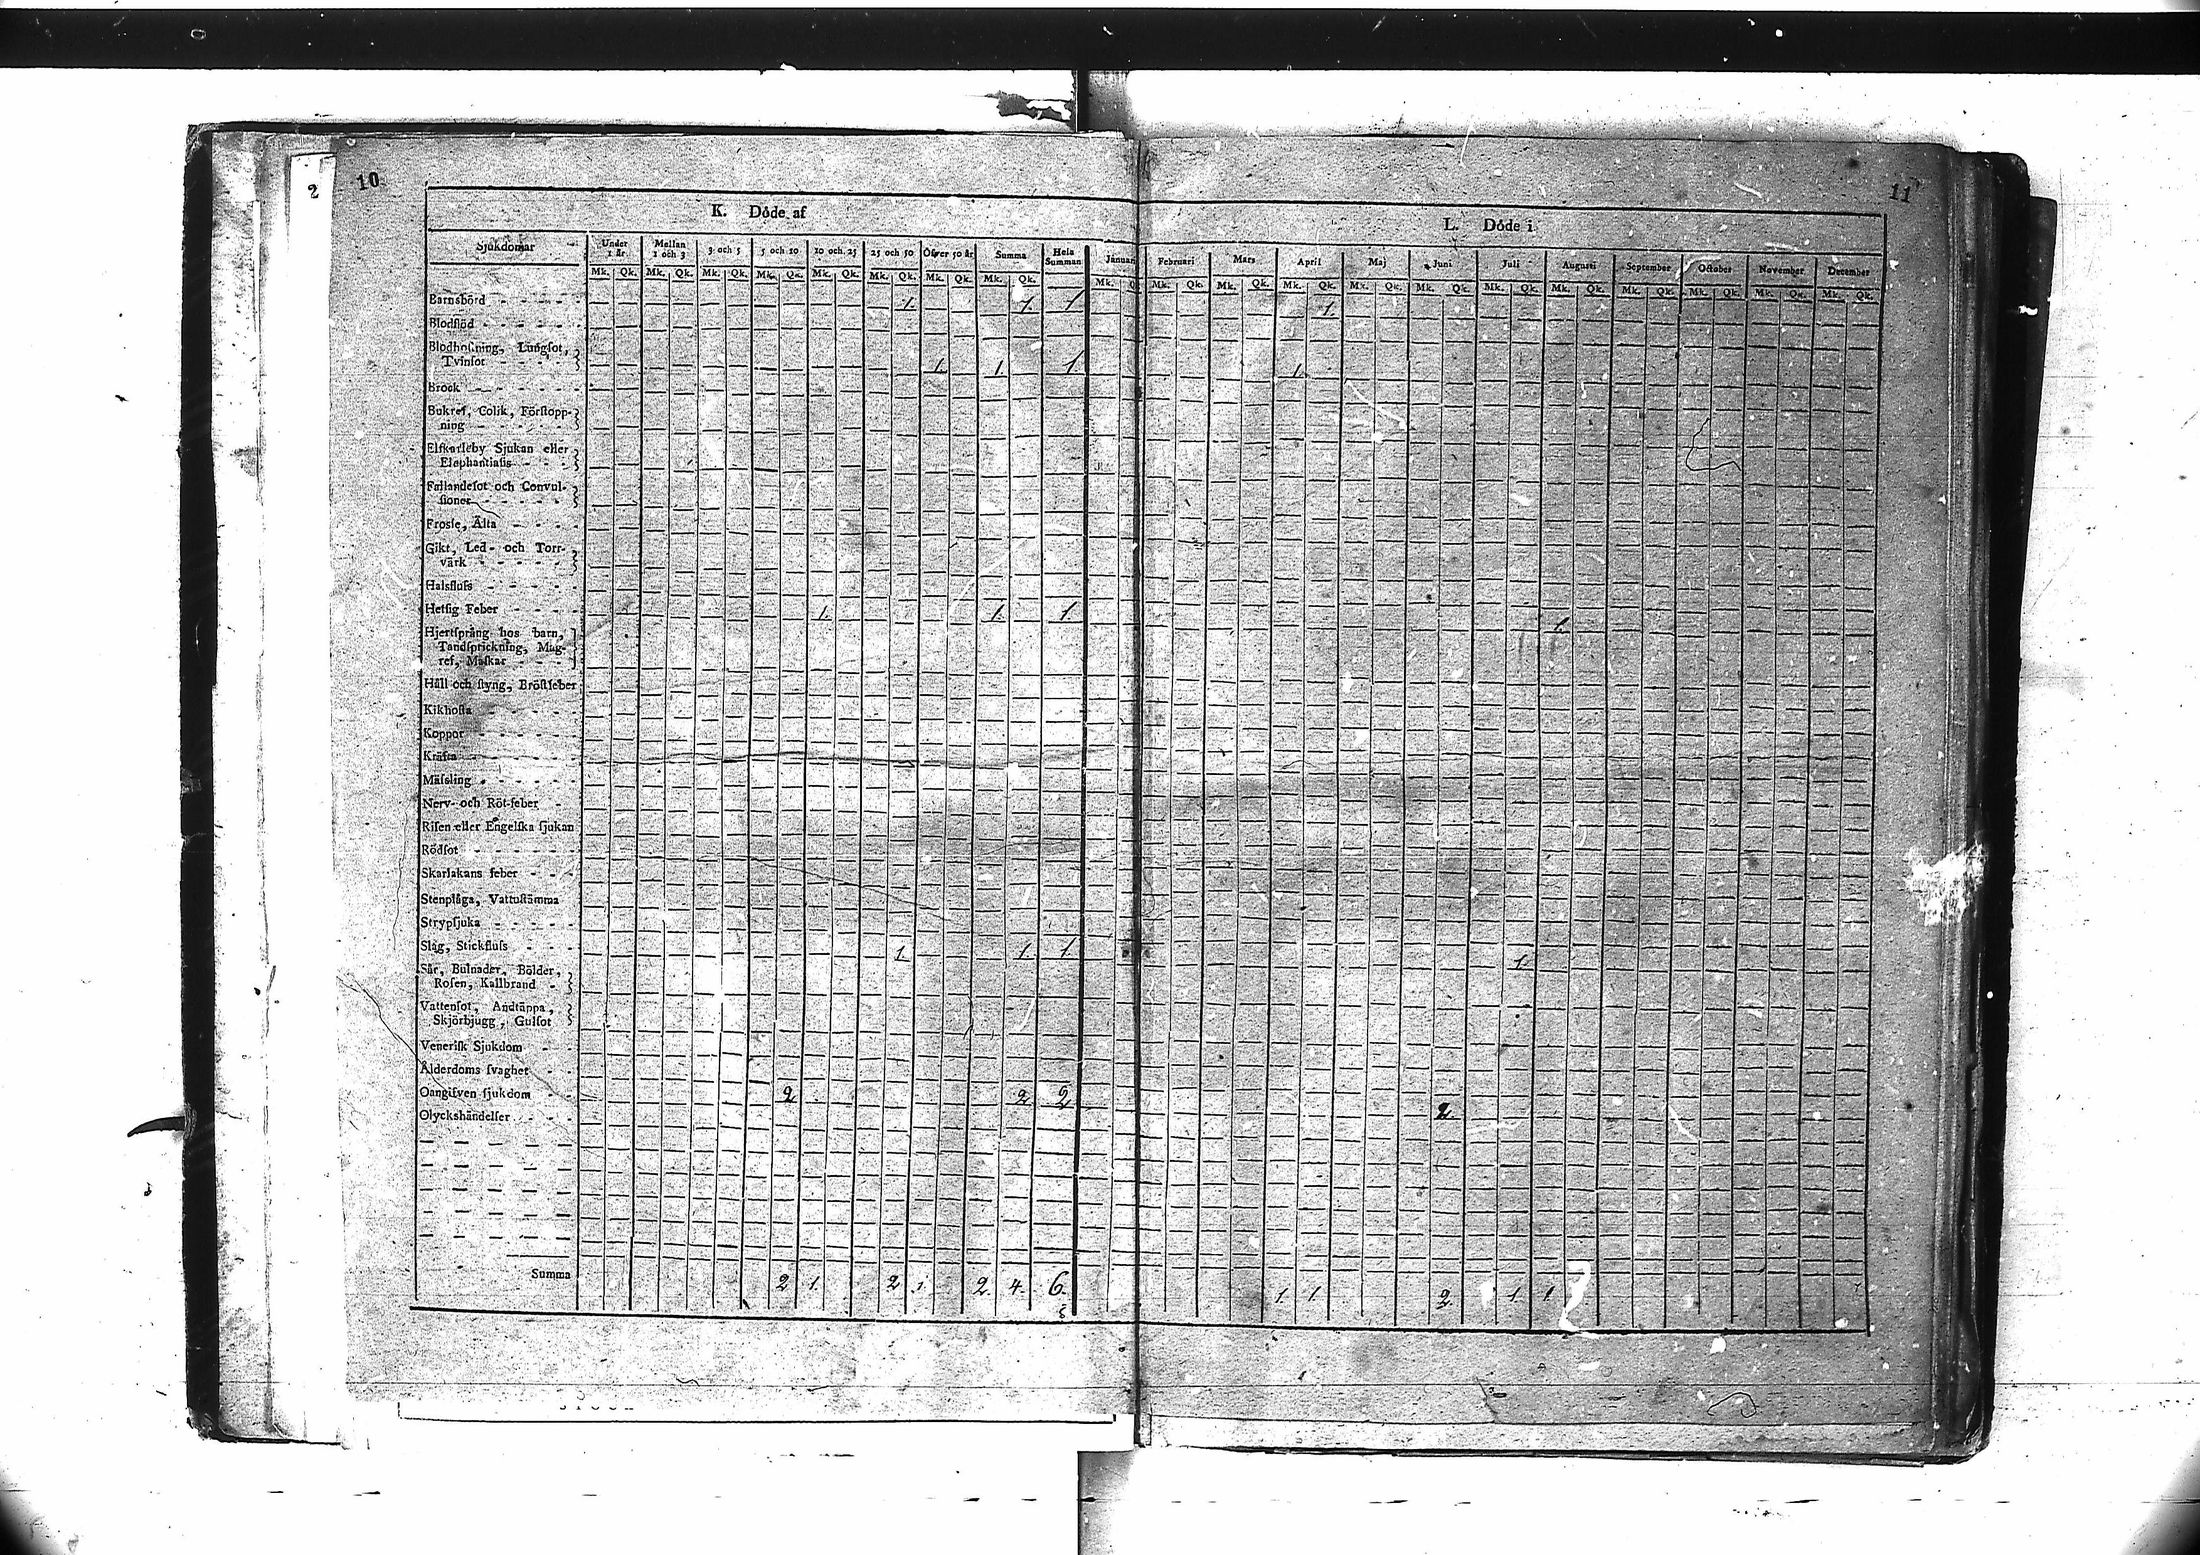 2
10
11
K. Döde af
L. Döde i
Sjukdomar
Under 1 år
Mellan 1 och 3
3 och 5
5 och 10
10 och 25
25 och 50
Öfver 50 år
Summa
Hela Summan
Januari
Februari
Mars
April
Maj
Juni
Juli
Augusti
September
October
November
December
Mk. Qk. Mk. Qk. Mk. Qk. Mk. Qk. Mk. Qk. Mk. Qk. Mk. Qk. Mk. Qk. Mk. Qk. Mk. Qk. Mk. Qk. Mk. Qk. Mk. Qk. Mk. Qk. Mk. Qk. Mk. Qk. Mk. Qk. Mk. Qk. Mk. Qk. Mk. Qk.
Barnsbörd 1. 1. 1 1.
Blodflöd
Blodhostning, Lungſot,
Tvinſot 1. 1. 1 1.
Brock
Bukref, Colik, Förſtopp-
ning
Elfkarleby Sjukan eller
Elephantiaſis
Fallandeſot och Convul-
ſioner
Frosſe, Älta
Gikt, Led- och Torr-
värk
Halsfluſs
Hetſig Feber 1. 1. 1. 1.
Hjertſprång hos barn,
Tandſprickning, Mag-
ref, Maſkar
Håll och ſtyng, Bröſtfeber
Kikhoſta
Koppor
Kräfta
Mäſsling
Nerv- och Röt-feber
Riſen eller Engelſka ſjukan
Rödſot
Skarlakans feber
Stenplåga, Vattuſtämma
Strypſjuka
Slag, Stickfluſs 1. 1. 1. 1.
Sår, Bulnader, Bölder,
Roſen, Kallbrand
Vattenſot, Andtäppa,
Skjörbjugg, Gulſot
Veneriſk Sjukdom
Ålderdoms ſvaghet
Oangifven ſjukdom 2 2 2 2.
Olyckshändelſer
Summa 2 1. 2 1. 2. 4. 6. 1. 1. 2. 1. 1.